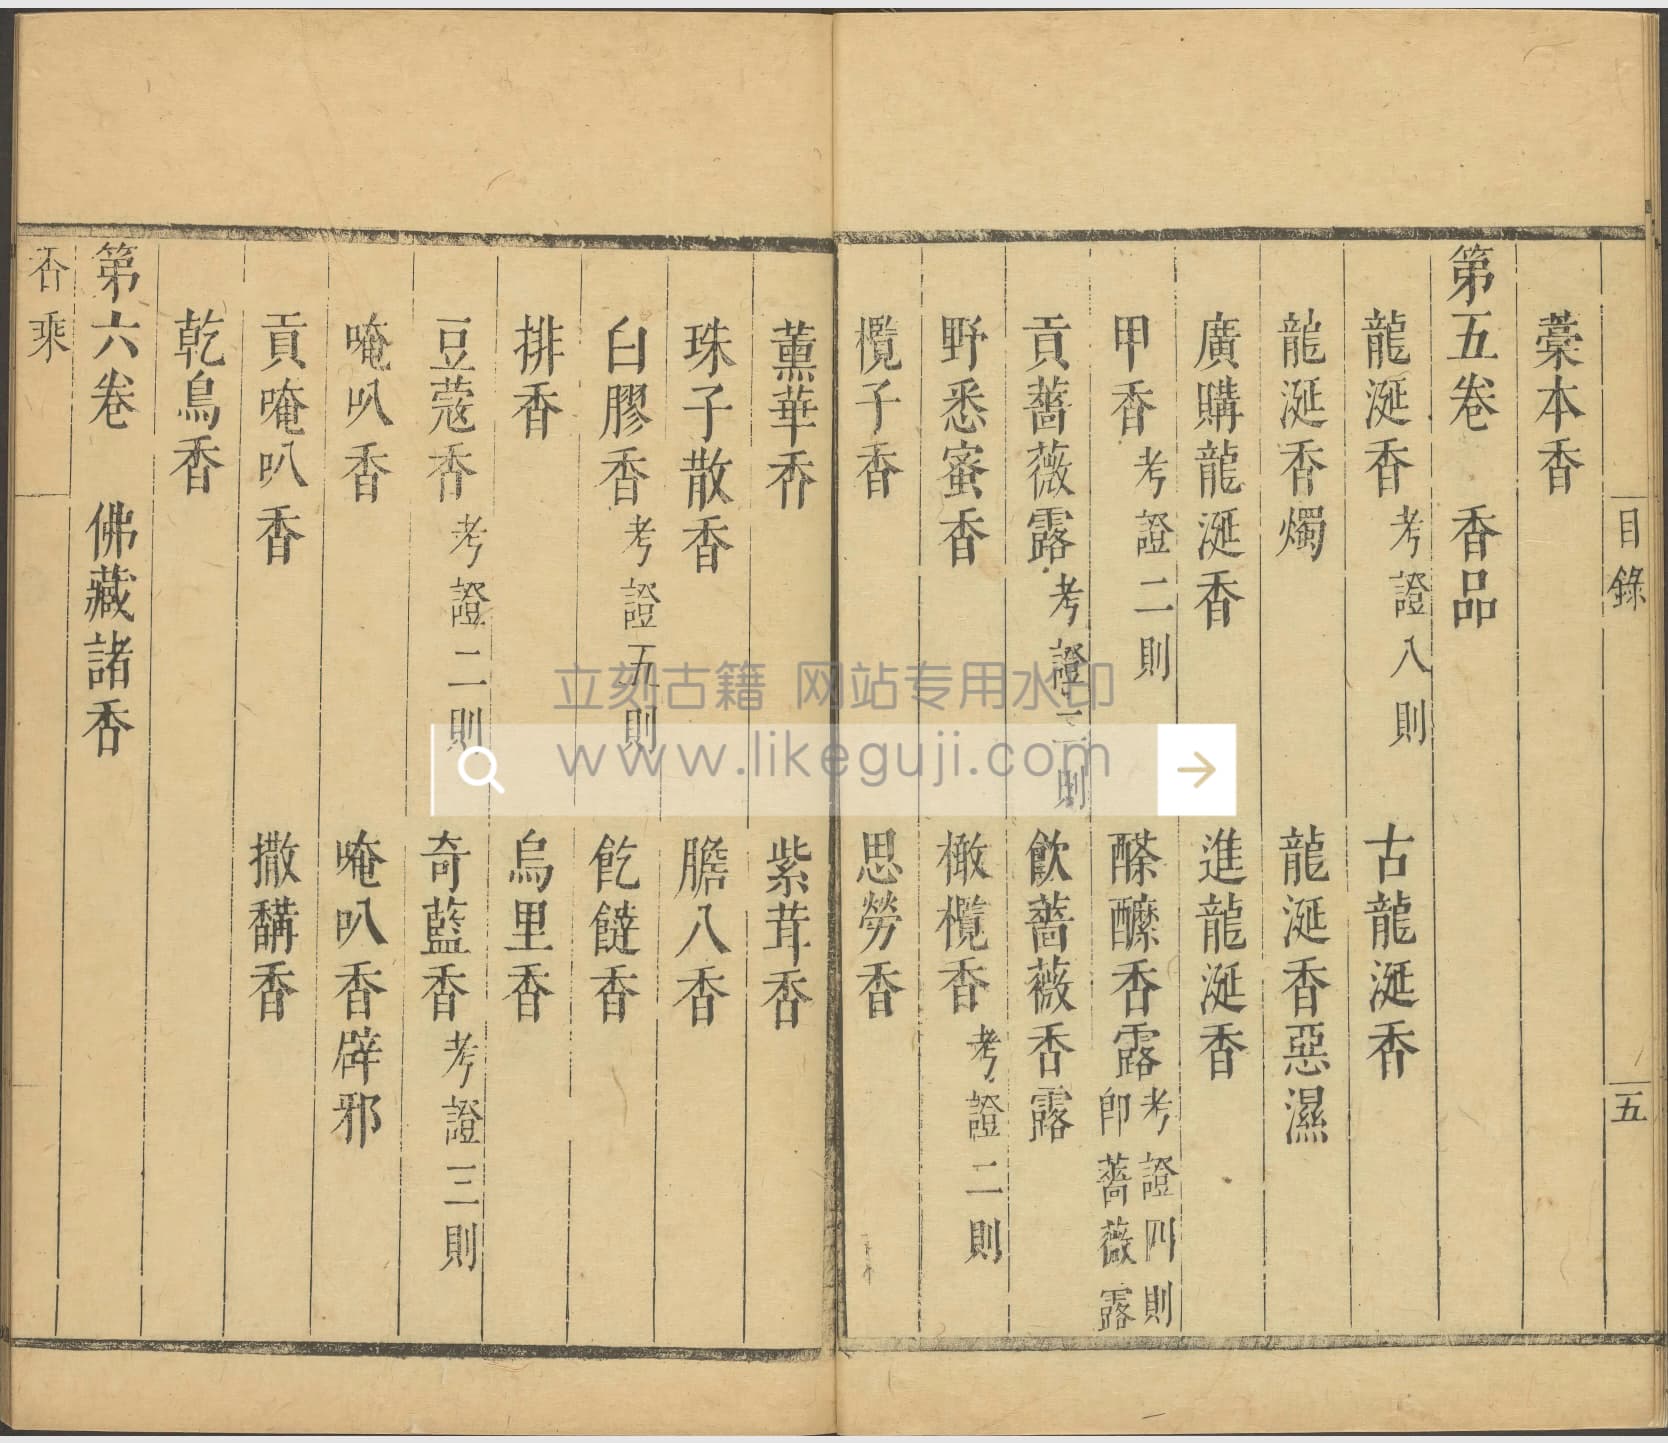 目錄
五
藁本香
第五卷 香品
龍涎香考證八則 古龍涎香
龍涎香燭 龍涎香惡濕
廣購龍涎香 進龍涎香
甲香考證二則 酴醾香露考證四則
即薔薇露
貢薔薇露考證則 飲薔薇香露
野悉蜜香 橄欖香考證二則
欖子香 思勞香
薰華香 紫茸香
珠子散香 膽八香
白膠香考證五則 香
排香 烏里香
豆蔻香考證二則 奇藍香考證三則
唵叭香 唵叭香辟邪
貢唵叭香 撒香
乾鳥香
第六卷 佛藏諸香
香乘
立刻古籍 网站专用水印
www.likeguji.com